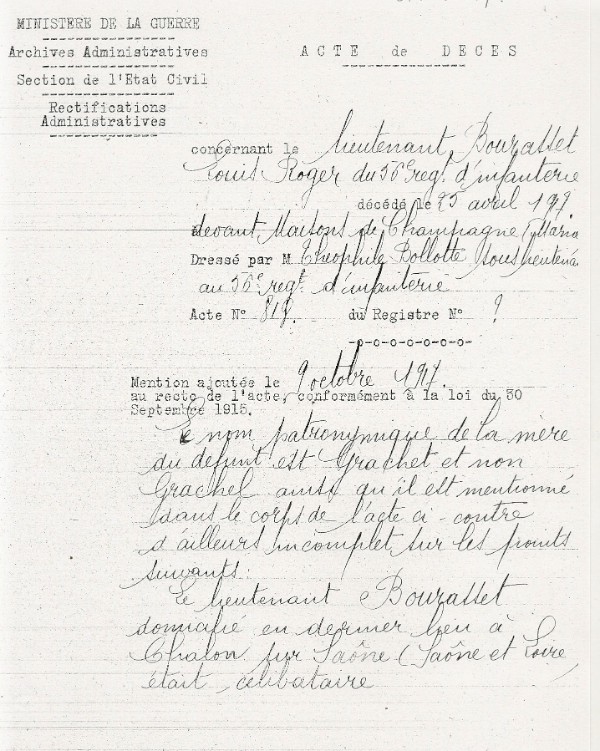 MINISTERE DE LA GUERRE
Archives Administratives
Section de l'Etat Civil
Rectifications
Administratives
ACTE de DECES
concernant le lieutenant Bourasset
Louis Roger du 56e reg. d'infanterie
décédé le 25 avril 1917
devant Maisons de Champagne (Marne
Dressé par M Théophile Bollotte sous lieutena
au 56e regt. d'infanterie
Acte N° 819. du Registre N° ?
-o-o-o-o-o-o-o-
Mention ajoutée le 9 octobre 1917.
au recto de l'acte, conformément à la loi du 30
Septembre 1915.
Le nom patronymique de la mère
du défunt est Grachet et non
Grachel ainsi qu'il est mentionné
dans le corps de l'acte ci-contre
d'ailleurs incomplet sur les points
suivants:
Le lieutenant Bourasset
domicilié en dernier lieu à
Chalon sur Saône (Saône et Loire,
était célibataire